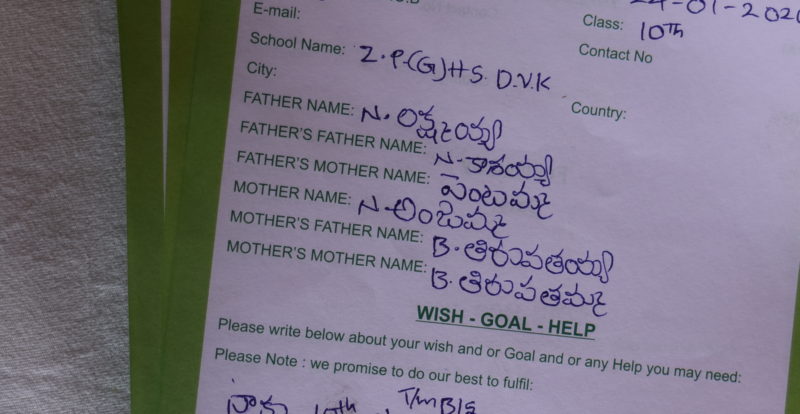 24-01-202
E-mail:
Class: 10th
School Name: Z.P.(G)H.S. D.V.K
Contact No
City:
Country:
FATHER NAME: N. లక్ష్మయ్య
FATHER'S FATHER NAME: N. కాశయ్య
FATHER'S MOTHER NAME: పెంటమ్మ
MOTHER NAME: N. అంజమ్మ
MOTHER'S FATHER NAME: B. తిరుపతయ్య
MOTHER'S MOTHER NAME: B. తిరుపతమ్మ
WISH - GOAL - HELP
Please write below about your wish and or Goal and or any Help you may need:
Please Note : we promise to do our best to fulfil:
నాకు 10th